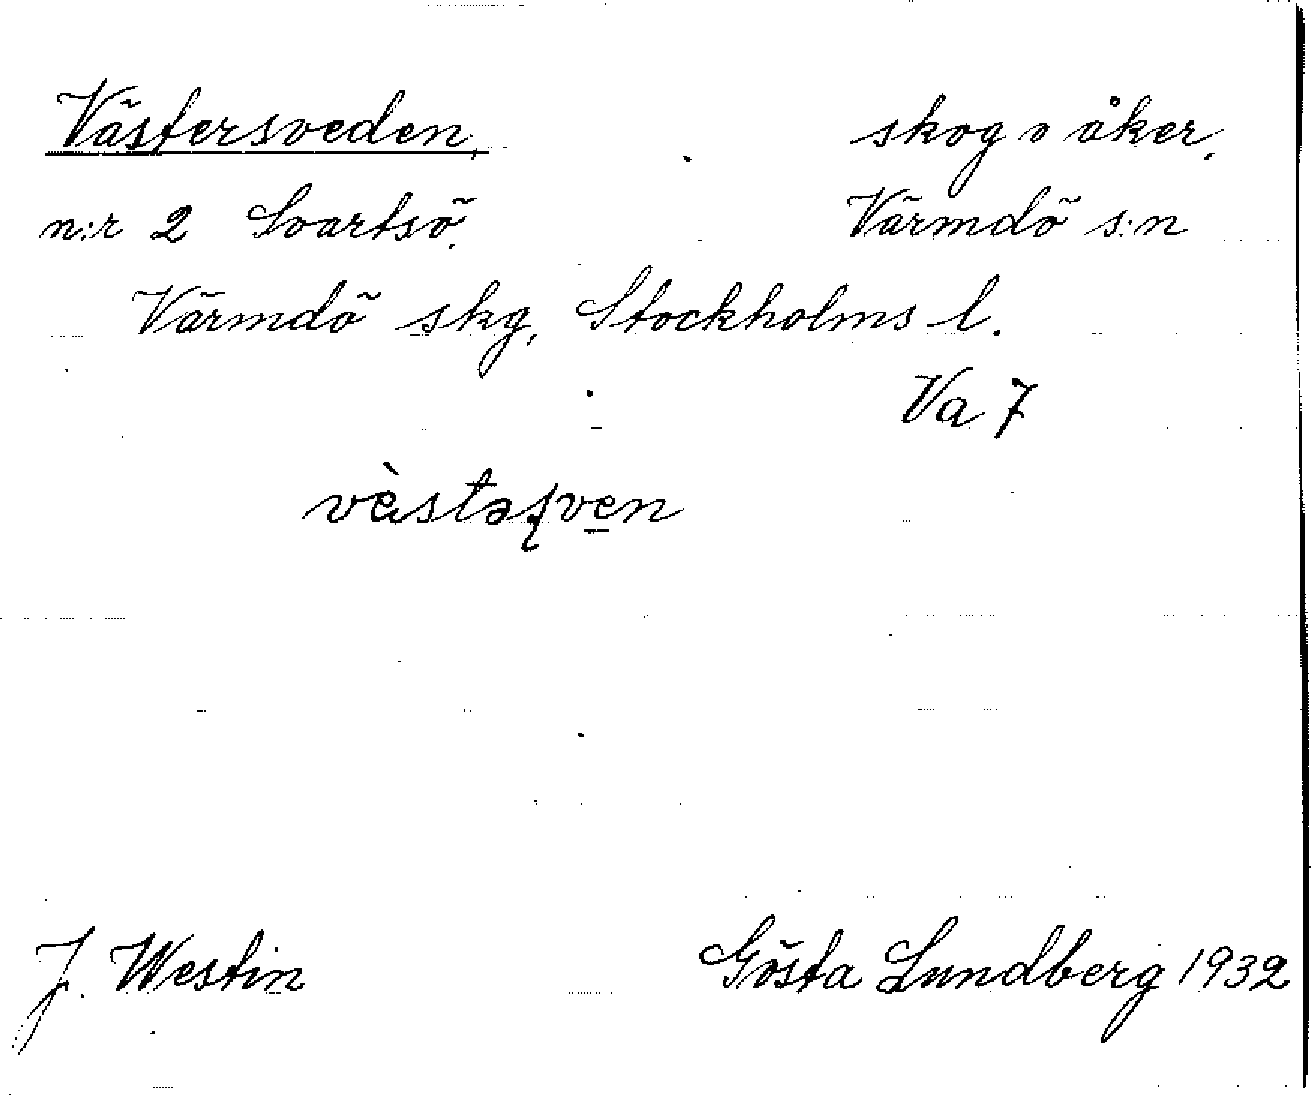 Västersveden, skog o åker.
n:r 2 Svartsö. Värmdö s:n
Värmdö skg, Stockholms l.
Va 7
J. Westin Gösta Lundberg 1932